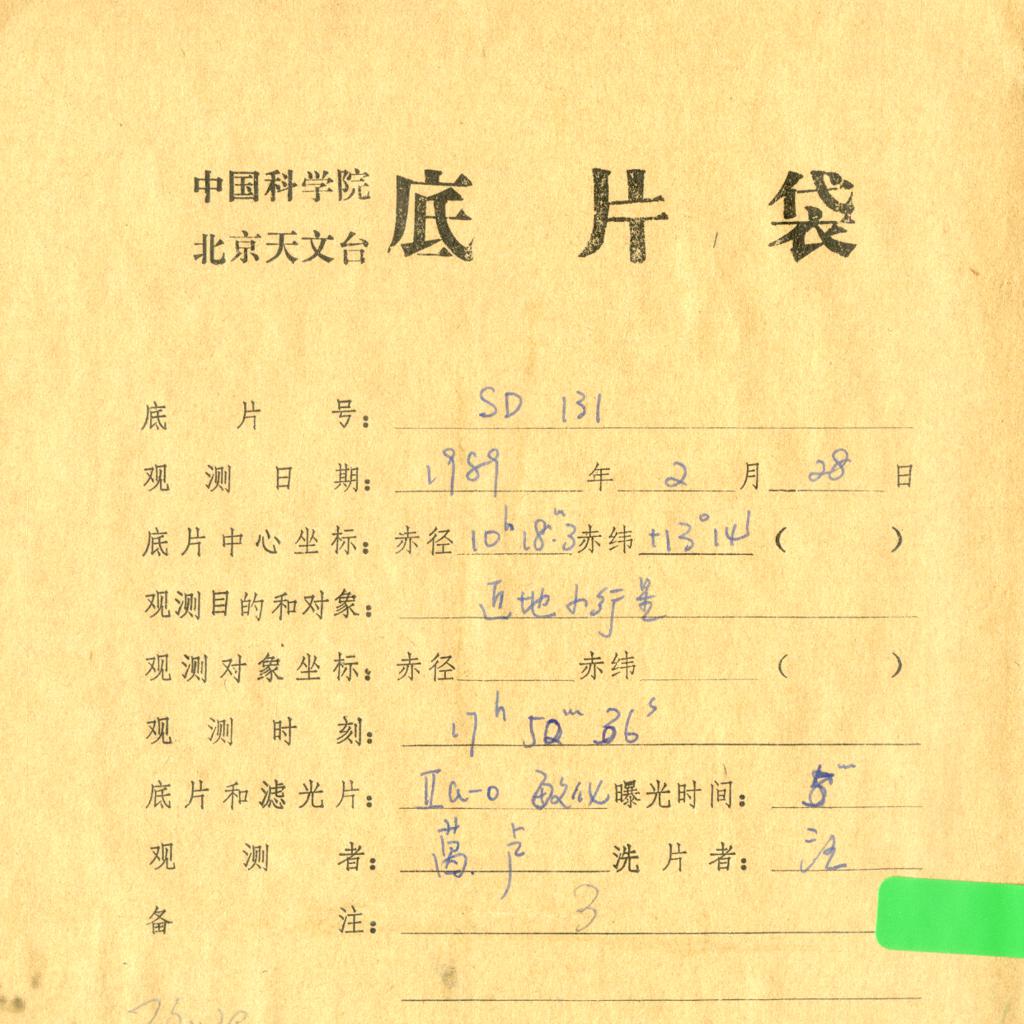 中国科学院 底片袋
北京天文台
底片号: SD 131
观测日期: 1989年2月28日
底片中心坐标: 赤径 10h 18m.3 赤纬 +13°14' ( )
观测目的和对象: 近地小行星
观测对象坐标: 赤径 赤纬 ( )
观测时刻: 17h 50m 36s
底片和滤光片: IIa-o 敏化 曝光时间: 5m
观测者: 萬 卢 洗片者: 汪
备注: 3